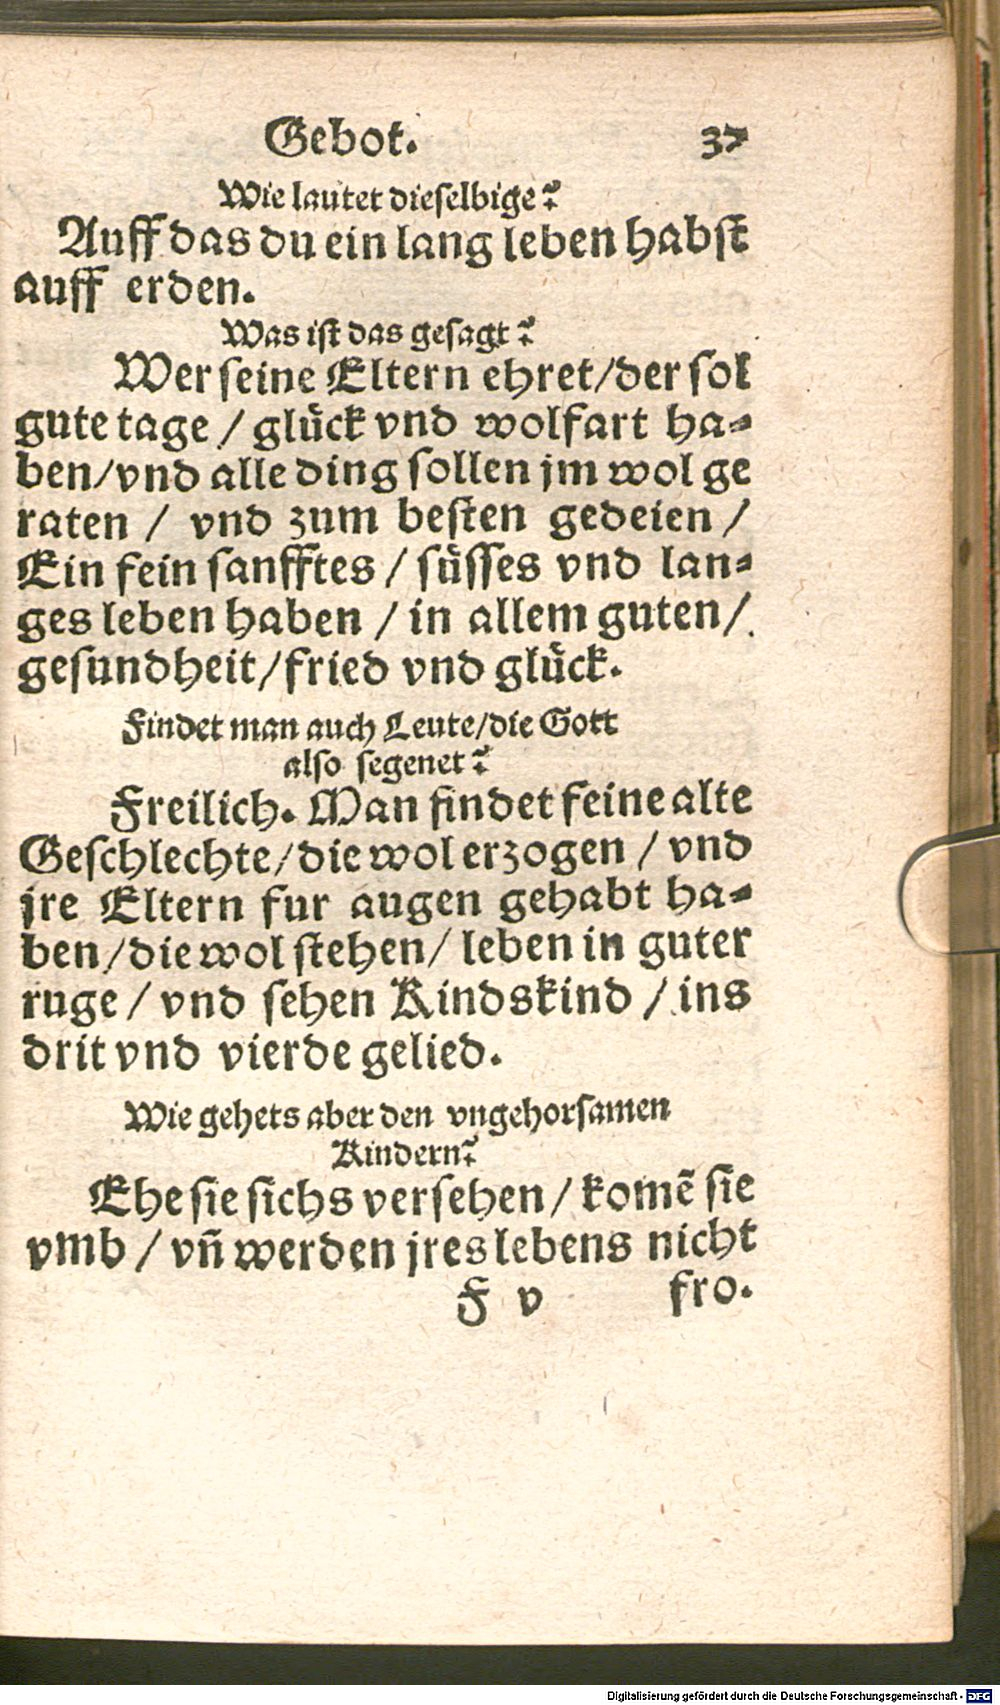 Gebot. 37
Wie lautet dieſelbige?
Auff das du ein lang leben habſt
auff erden.
Was iſt das geſagt?
Wer ſeine Eltern ehret/der ſol
gute tage / gluͤck vnd wolfart ha⸗
ben/vnd alle ding ſollen jm wol ge
raten / vnd zum beſten gedeien /
Ein fein ſanfftes / ſuͤſſes vnd lan⸗
ges leben haben / in allem guten/
geſundheit/fried vnd gluͤck.
Findet man auch Leute/die Gott
alſo ſegenet?
Freilich. Man findet feine alte
Geſchlechte/die wol erzogen / vnd
jre Eltern fur augen gehabt ha⸗
ben/die wol ſtehen/ leben in guter
ruge / vnd ſehen Kindskind / ins
drit vnd vierde gelied.
Wie gehets aber den vngehorſamen
Kindern?
Ehe ſie ſichs verſehen/ komē ſie
vmb / vñ werden jres lebens nicht
F v fro.
Digitalisierung gefördert durch die Deutsche Forschungsgemeinschaft - DFG